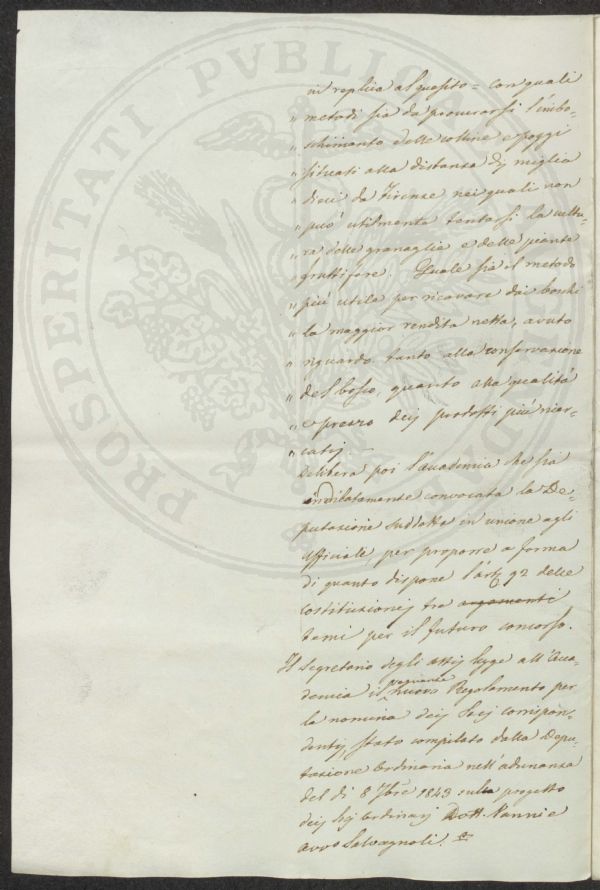 PROSPERITATI PVBLICAE
in replica al quesito = con quali
" metodi sia da procurarsi l'imbo-
" schimento delle colline e poggi
" situati alla distanza di miglia
" dieci da Firenze nei quali non
" può utilmente tentarsi la cultu-
" ra delle granaglie e delle piante
" fruttifere. Quale sia il metodo
" più utile per ricavare dai boschi
" la maggior rendita netta, avuto
" riguardo tanto alla conservazione
" del bosco, quanto alla qualità
" e prezzo dei prodotti più ricer-
" cati; =
Delibera poi l'Accademia che sia
immediatamente convocata la De-
putazione suddetta in unione agli
Ufficiali, per proporre a forma
di quanto dispone l'art. 92 delle
Costituzioni tre argomenti
temi per il futuro concorso.
Il Segretario degli atti legge all'Acca-
demia il nuovo Regolamento per
la nomina dei Soci corrispon-
denti, stato compilato dalla Depu-
tazione Ordinaria nell'adunanza
del dì 8 7bre 1843 sulla progetto
dei Sij Ordinarj Dott. Nanni e
Avvo Salvagnoli.